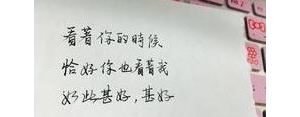 看著你的時候
恰好你也看著我
如此甚好，甚好